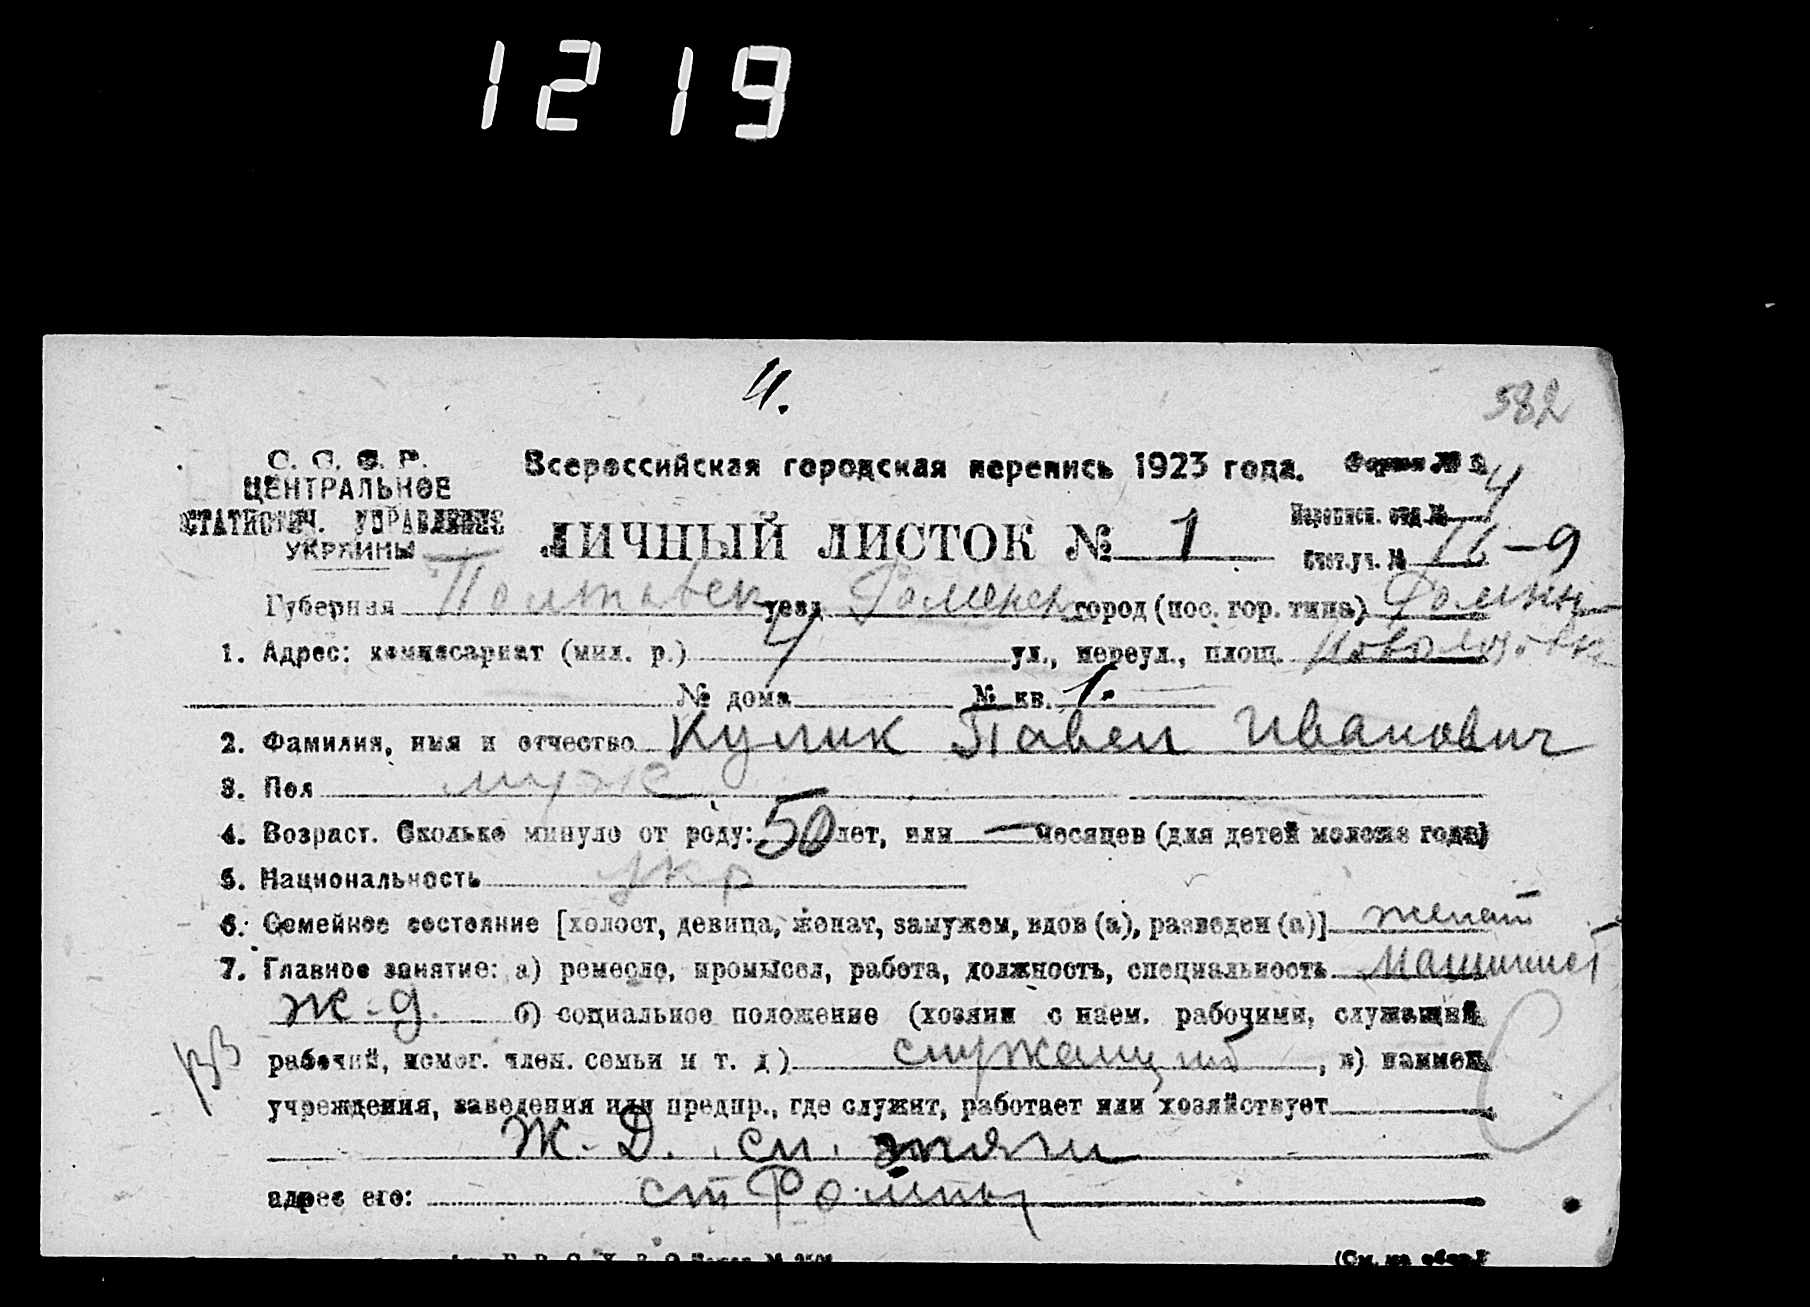 1219
4.
582
С. С. С. Р.
ЦЕНТРАЛЬНОЕ
СТАТИСТИЧ. УПРАВЛЕНИЕ
УКРАИНЫ
Всероссийская городская перепись 1923 года.
ЛИЧНЫЙ ЛИСТОК № 1
Форма №
Переписн. отд. № 4
Счет. уч. № –9
Губерния Полтавск уезд Роменск город (пос. гор. типа) Ромны
1. Адрес: комиссариат (мил. р.) 4 ул., переул., площ.
№ дома № кв. 1.
2. Фамилия, имя и отчество Кулик Павел Иванович
3. Пол муж
4. Возраст. Сколько минуло от роду: 50 лет, или — месяцев (для детей моложе года)
5. Национальность укр
6. Семейное состояние [холост, девица, женат, замужем, вдов (а), разведен (а)] женат
7. Главное занятие: а) ремесло, промысел, работа, должность, специальность машинист
ж.-д. б) социальное положение (хозяин с наем. рабочими, служащий,
рабочий, помог. член. семьи и т. д) служащий, в) наимен.
учреждения, заведения или предпр., где служит, работает или хозяйствует
Ж.-Д. сл. тяги
адрес его: ст Ромны
(См. на обор.)